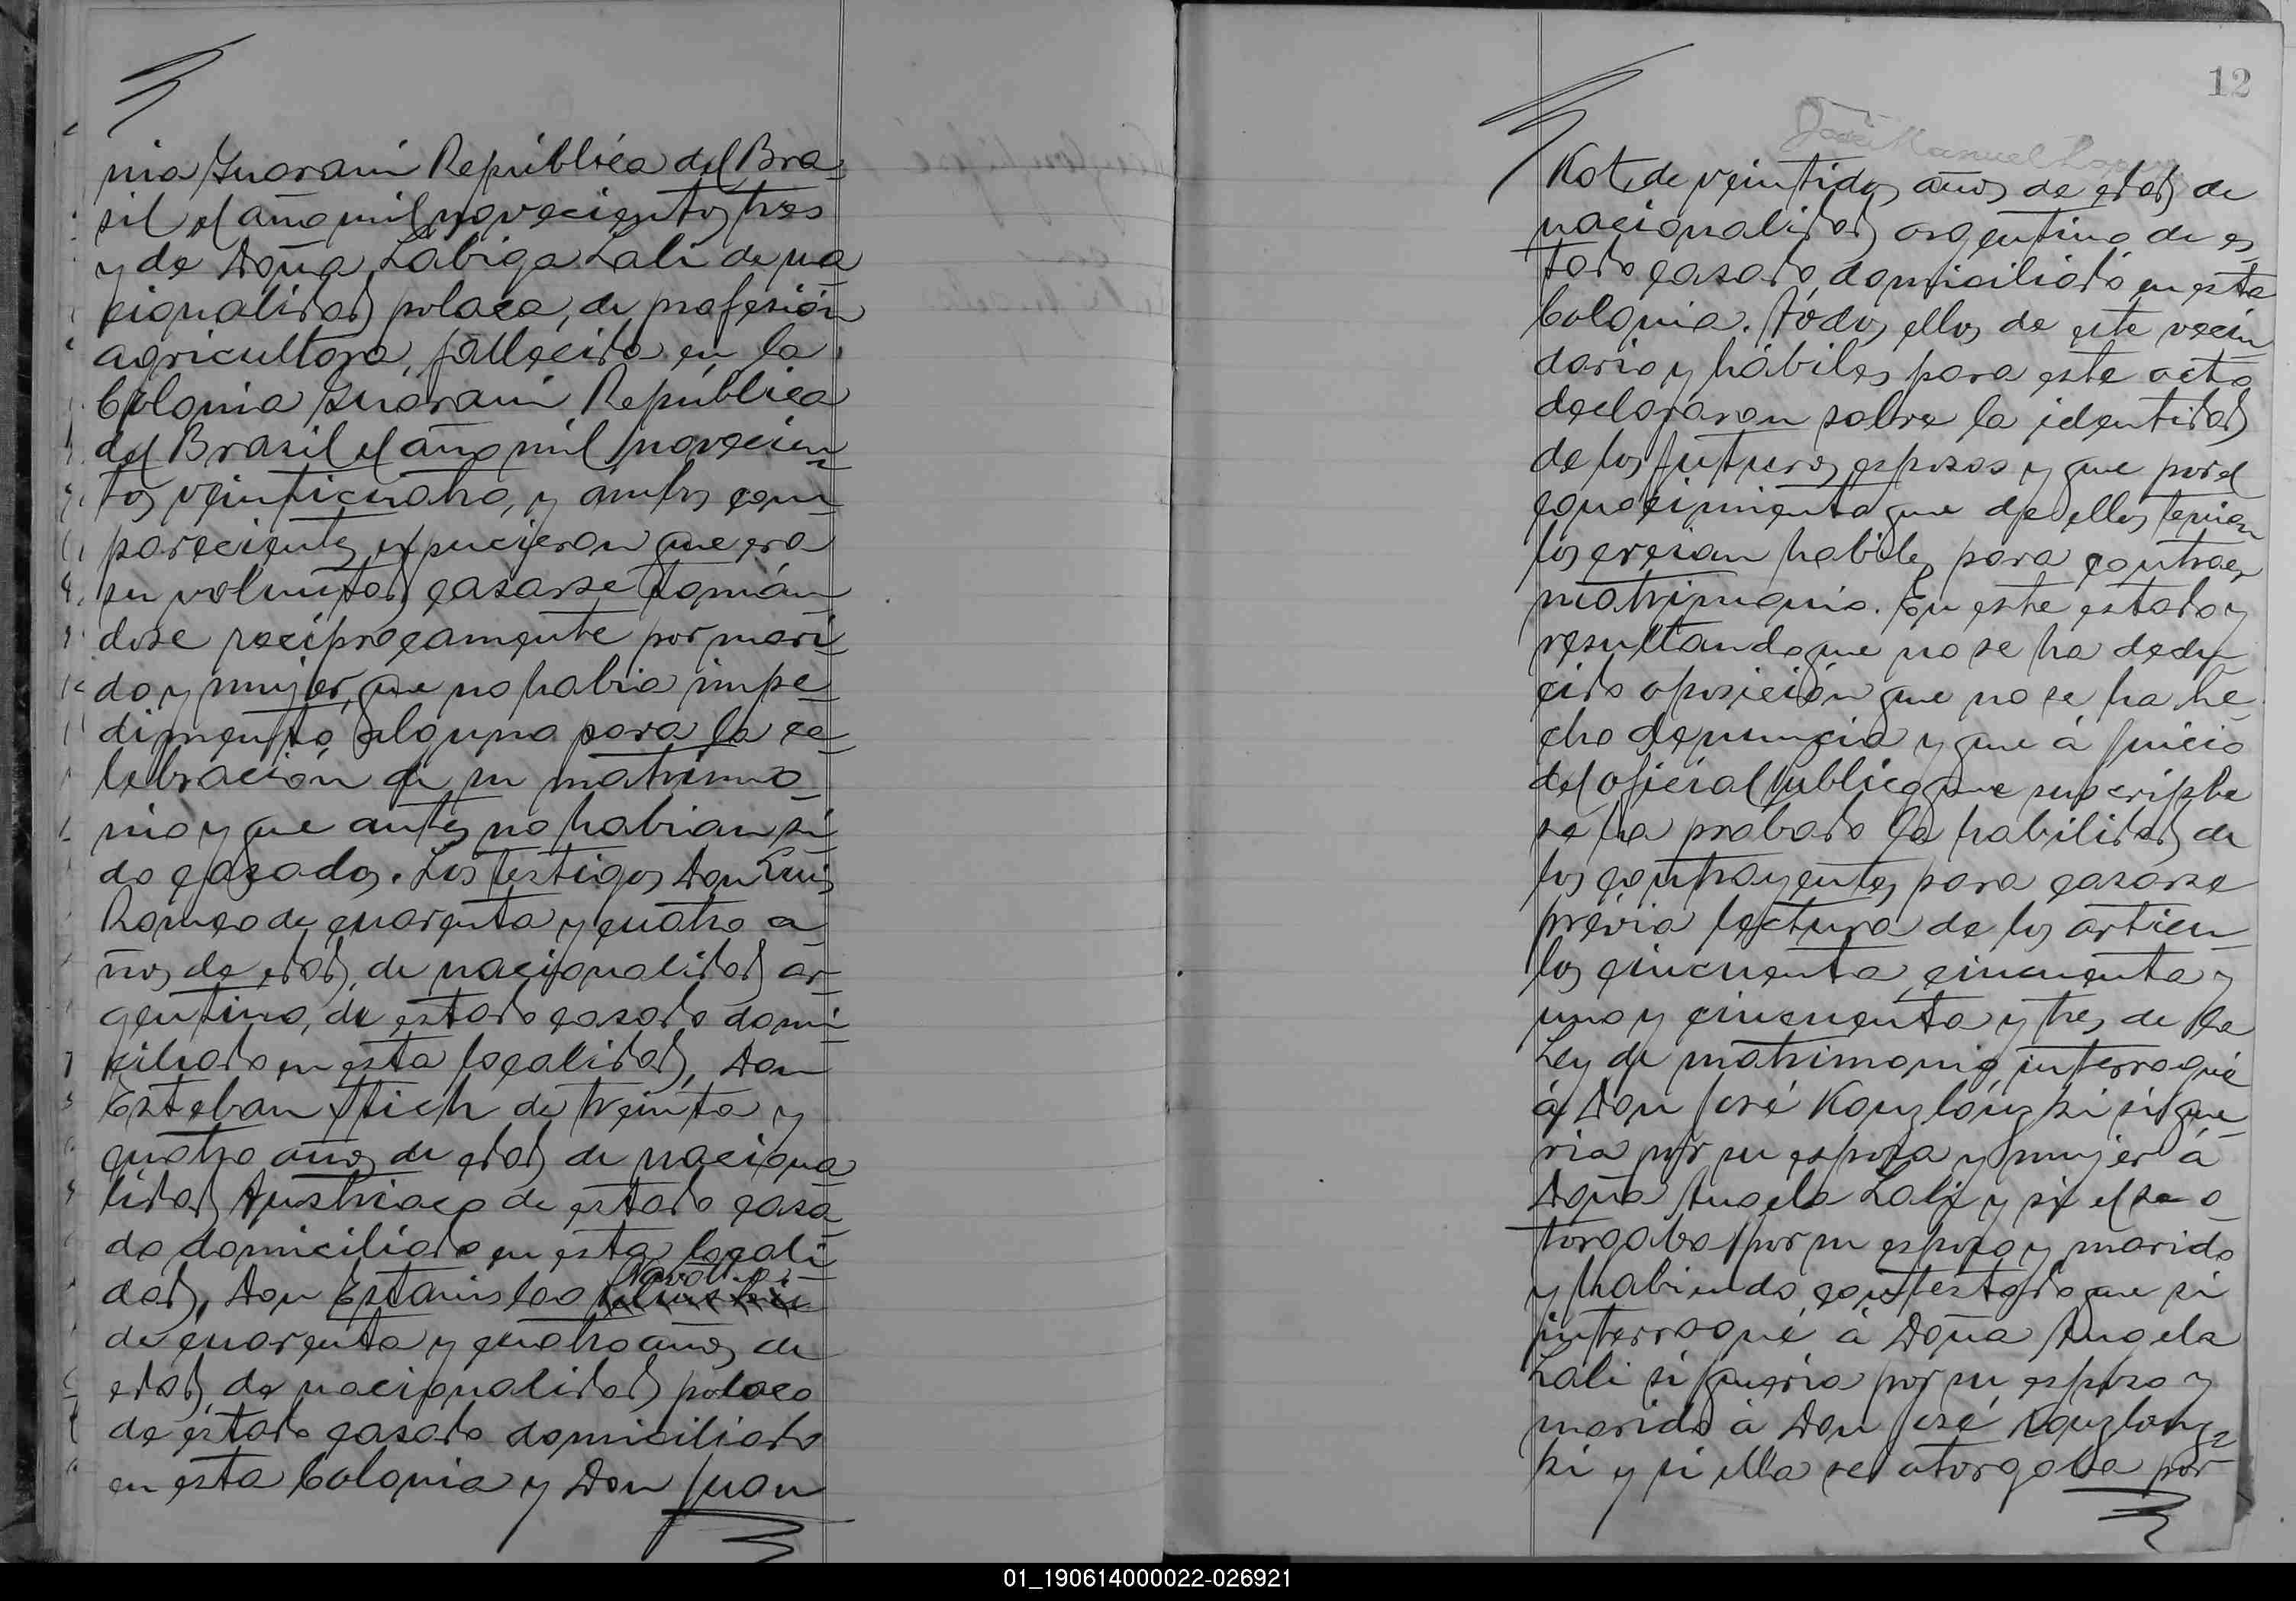 nia Guarani República del Bra-
sil el año mil novecientos tres
y de Doña Labiga Lali de na-
cionalidad polaca, de profesión
agricultora, fallecida en la
Colonia Guarani República
del Brasil el año mil novecien-
tos veinticuatro, y ambos com-
parecientes expucieron que era
su voluntad casarse tomán-
dose reciprocamente por mari-
do y mujer, que no habia impe-
dimento alguno para la ce-
lebración de su matrimo-
nio y que antes no habian si-
do casados. Los testigos Don Luis
Romeo de cuarenta y cuatro a-
ños de edad, de nacionalidad ar-
gentino, de estado casado domi-
ciliado en esta localidad, Don
Esteban Ttich de treinta y
cuatro años de edad de naciona-
lidad Austriaco de estado casa-
do domiciliado en esta locali-
dad, Don Estanislao
de cuarenta y cuatro años de
edad, de nacionalidad polaco
de estado casado domiciliado
en esta Colonia y Don Juan
12
José Manuel
Kot, de veintidos años de edad de
nacionalidad argentino de es-
tado casado domiciliado en esta
Colonia. Tódos ellos de este vecin-
dario y hábiles para este acto
declararon sobre la identidad
de los futuros esposos y que por el
conocimiento que de ellos tenian
los creian habiles para contraer
matrimonio. En este estado y
resultando que no se ha dedu-
cido oposición que no se ha he-
cho denuncia y que á juicio
del oficial público que suscribe
se ha probado la habilidad de
los contrayentes para casarse
prévia lectura de los articu-
los cincuenta, cincuenta y
uno y cincuenta y tres de la
Ley de matrimonio interrogué
á Don José Konzlouzki si que-
ria por su esposa y mujer á
Doña Angela Lali y si el se o-
torgaba por su esposo y marido
y habiendo contestado que si
interrogué á Doña Angela
Lali si queria por su esposo y
marido á Don José Konzlonz-
ki y si ella se otorgaba por
01_190614000022-026921